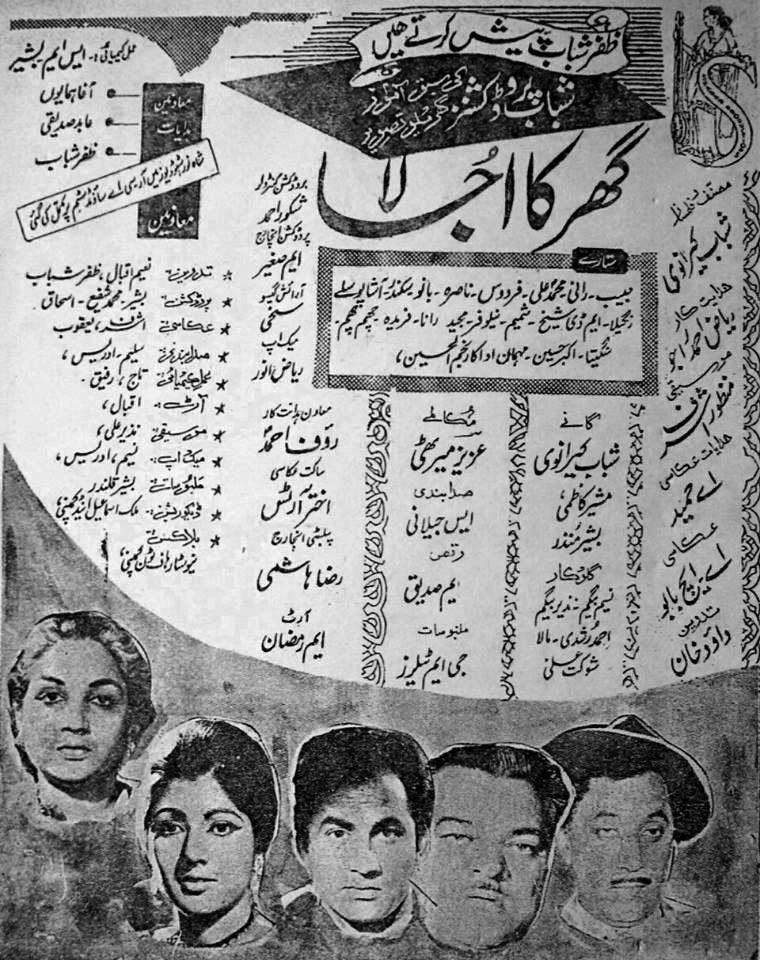 ظفر شباب پیش کرتے ھیں
شباب پروڈکشنز کی سبق آموز گھریلو تصویر
گھر کا اجالا
ستارے
حبیب - رانی - محمد علی - فردوس - ناصرہ - بانو - سکندر - آشا پوسلے
رنگیلا - ایم ڈی شیخ - شمیم - نیلوفر - مجید - رانا - فریدہ - چھم چھم -
سنگیتا - اکبر حسین - مہمان اداکار نجم الحسین،
مصنف فلمساز
شباب کیرانوی
ھدایت کار
ریاض احمد راجو
موسیقی
منظور اشرف
ھدایات عکاسی
اے حمید
عکاسی
اے ایچ بابو
تدوین
داؤد خان
گانے
شباب کیرانوی
مشیر کاظمی
بشیر منذر
گلوکار
نسیم بیگم - نذیر بیگم
احمد رشدی - مالا
شوکت علی
مکالمے
عزیز میرٹھی
صدا بندی
ایس جیلانی
رقص
ایم صدیق
ملبوسات
جی ایم ٹیلرز
پروڈکشن کنٹرولر
شکور احمد
پروڈکشن انچارج
ایم صغیر
آرائش گیسو
سخی
میک اپ
ریاض انور
معاون ہدایت کار
رؤف احمد
ساکت عکاسی
اختر آرٹس
پبلسٹی انچارج
رضا ہاشمی
آرٹ
ایم رمضان
عمل کیمیائی :- ایس ایم بشیر
معاونین ہدایات
آغا ہمایوں
عابد صدیقی
ظفر شباب
شاہ نور سٹوڈیوز میں آر سی اے ساؤنڈ سسٹم پر مکمل کی گئی
معاونین
تدوین :- نعیم اقبال، ظفر شباب
پروڈکشن :- بشیر - محمد شفیع - اسحاق
عکاسی :- اشرف، یعقوب
صدابندی :- سلیم - ادریس،
عمل کیمیائی :- تاج، رفیق -
آرٹ :- اقبال،
موسیقی :- نذیر علی،
میک اپ :- نسیم، ادریس،
ملبوسات :- بشیر قلندر
فرنیچر :- ملک اسماعیل اینڈ کمپنی،
بلاکس :-
نیو سٹار کمپنی،